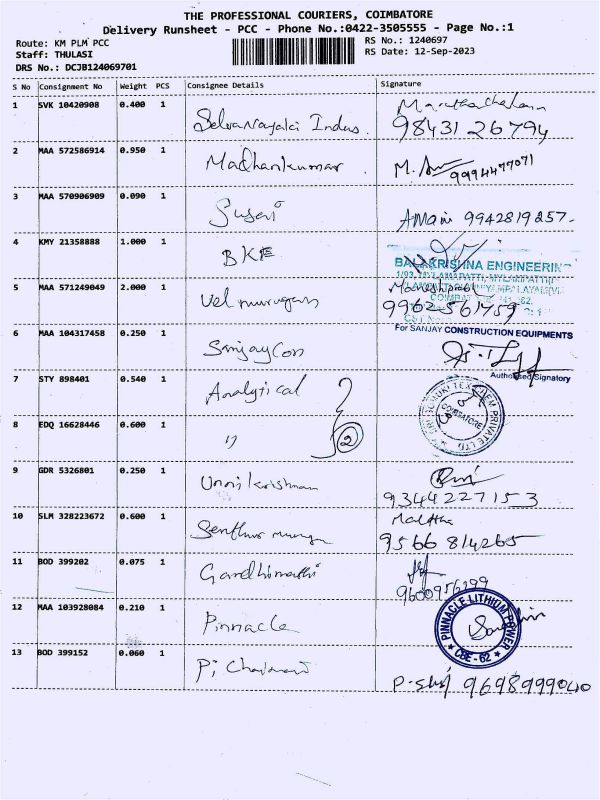 THE PROFESSIONAL COURIERS, COIMBATORE
Delivery Runsheet - PCC - Phone No.:0422-3505555 - Page No.:1
Route: KM PLM PCC
RS No.: 1240697
Staff: THULASI
RS Date: 12-Sep-2023
DRS No.: DCJB124069701
S No Consignment No Weight PCS Consignee Details Signature
1 SVK 10420908 0.400 1 Selvanayaki Indus. 98431 26794
2 MAA 572586914 0.950 1 Madhankumar M. 9994477071
3 MAA 570906909 0.090 1 Susai 9942819257
4 KMY 21358888 1.000 1 BKE
BALAKRISHNA ENGINEERING
5 MAA 571249049 2.000 1 Velmurugan 9962561759
COIMBATORE
6 MAA 104317458 0.250 1 Sanjay Con
For SANJAY CONSTRUCTION EQUIPMENTS
Authorised Signatory
7 STY 898401 0.540 1 Analytical
COIMBATORE PRIVATE LTD
8 EDQ 16628446 0.600 1 " 2
9 GDR 5326801 0.250 1 Unnikrishnan 9344227153
10 SLM 328223672 0.600 1 9566 814265
11 BOD 399202 0.075 1 Gandhimathi
12 MAA 103928084 0.210 1 Pinnacle
PINNACLE LITHIUM POWER
CBE - 62
13 BOD 399152 0.060 1 9698999040